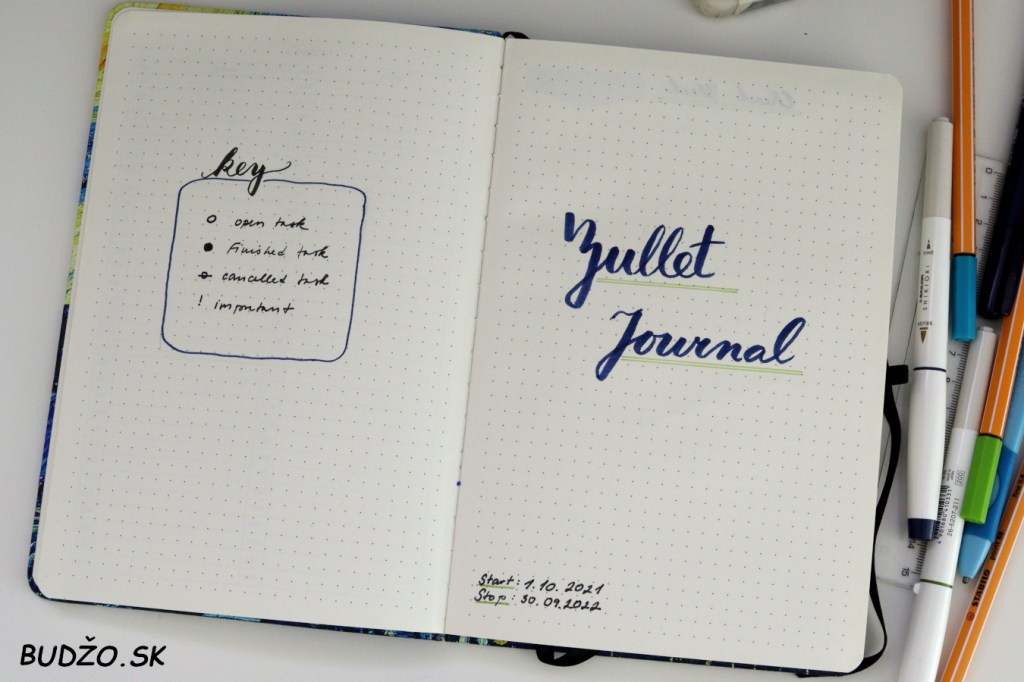 key
o open task
● Finished task
o cancelled task
! important
Bullet
Journal
Start: 1.10.2021
Stop: 30.09.2022
BUDŽO.SK
STABILO